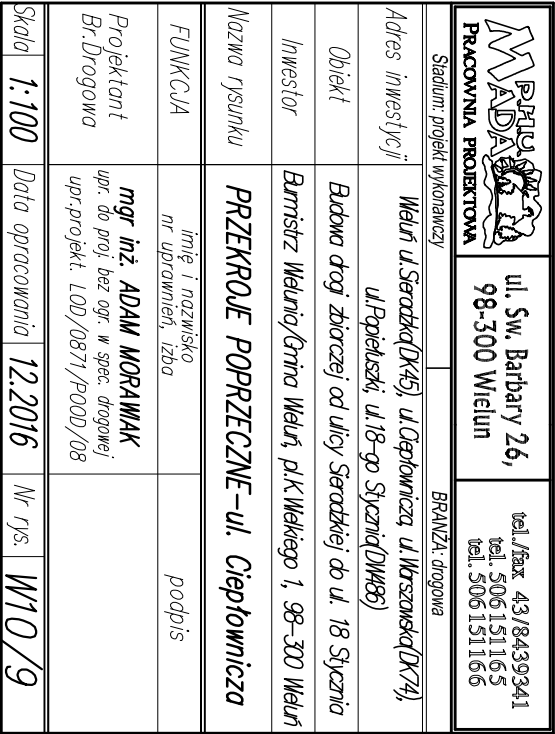 P.H.U.
MADA
PRACOWNIA PROJEKTOWA
ul. Sw. Barbary 26,
98-300 Wielun
tel./fax 43/8439341
tel. 506151165
tel. 506151166
Stadium: projekt wykonawczy
BRANŻA: drogowa
Adres inwestycji
Wieluń ul.Sieradzka(DK45), ul.Ciepłownicza, ul.Warszawska(DK74),
ul.Popiełuszki, ul.18-go Stycznia(DW486)
Obiekt
Budowa drogi zbiorczej od ulicy Sieradzkiej do ul. 18 Stycznia
Inwestor
Burmistrz Wielunia/Gmina Wieluń, pl.K.Wielkiego 1, 98-300 Wieluń
Nazwa rysunku
PRZEKROJE POPRZECZNE-ul. Ciepłownicza
FUNKCJA
imię i nazwisko
nr uprawnień, izba
podpis
Projektant
Br.Drogowa
mgr inż ADAM MORAWIAK
upr. do proj. bez ogr. w spec. drogowej
upr.projekt. LOD/0871/POOD/08
Skala
1:100
Data opracowania
12.2016
Nr rys.
W10/9